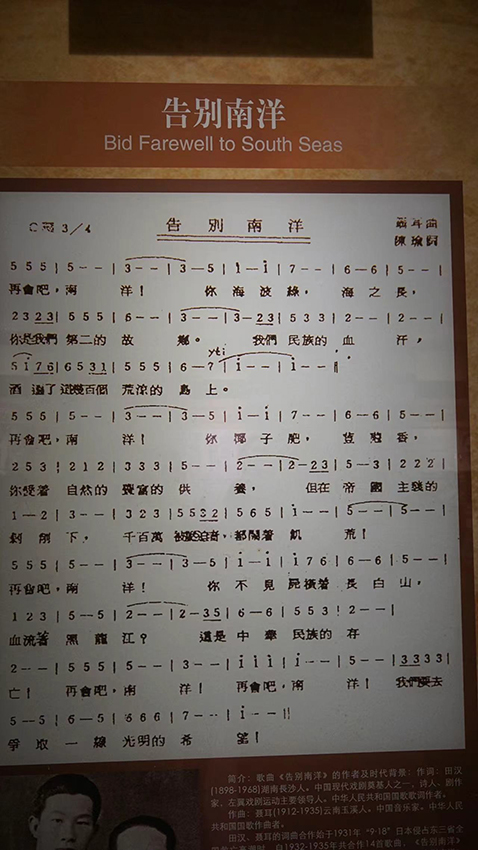 告别南洋
Bid Farewell to South Seas
C調 3/4 告 別 南 洋 聶 耳 曲
陳 瑜 詞
5 5 5 | 5 - - | 3 - - | 3 - 5 | i - i | 7 - - | 6 - 6 | 5 - - |
再會吧，南 洋！ 你 海 波 綠， 海 之 長，
2 3 2 3 | 5 5 5 | 6 - - | 3 - - | 3 - 2 3 | 5 - 5 | 3 3 3 | i - i | 7 - - |
你是我們 第二的 故 鄉。 我們 民族的 血 汗，
5 i 7 6 | 6 5 3 1 | 5 5 5 | 6 - 7 | i - - | i - - ||
洒 遍了 這幾百個 荒涼的 島 上。
5 5 5 | 5 - - | 3 - - | 3 - 5 | i - i | 7 - - | 6 - 6 | 5 - - |
再會吧，南 洋！ 你 椰 子 肥， 荳 蔻 香，
2 5 3 | 2 1 2 | 3 3 3 | 5 - - | 2 - - | 2 - 2 3 | 5 - 3 | 2 2 2 |
你受着 自然的 豐富的 供 養， 但在 帝 國 主義的
1 - 2 | 3 - - | 3 2 3 | 5 5 3 2 | 5 6 5 | i - - | 5 - - | 5 - - |
剝 削 下， 千百萬 被壓迫者，都鬧着 飢 荒！
5 5 5 | 5 - - | 3 - - | 3 - 5 | i - i | i 7 6 | 6 - 6 | 5 - - |
再會吧，南 洋！ 你 不 見 屍橫着 長 白 山，
1 2 3 | 5 - 5 | 2 - - | 2 - 3 5 | 6 - 6 | 5 5 3 | 2 - - |
血流着 黑 龍 江？ 這是 中 華 民族的 存
2 - - | 5 5 5 | 5 - - | 3 - - | i i i | i - - | 5 - - | 3 3 3 3 |
亡！ 再會吧，南 洋！ 再會吧，南 洋！ 我們要去
5 - 5 | 6 - 5 | 6 6 6 | 7 - - | i - - ||
爭 取 一 線 光明的 希 望！
简介：歌曲《告别南洋》的作者及时代背景：作词：田汉
[1898-1968]湖南长沙人。中国现代戏剧奠基人之一，诗人、剧作
家、左翼戏剧运动主要领导人。中华人民共和国国歌歌词作者。
作曲：聂耳(1912-1935)云南玉溪人。中国音乐家。中华人民
共和国国歌作曲者。
田汉、聂耳的词曲合作始于1931年 "9·18" 日本侵占东三省全